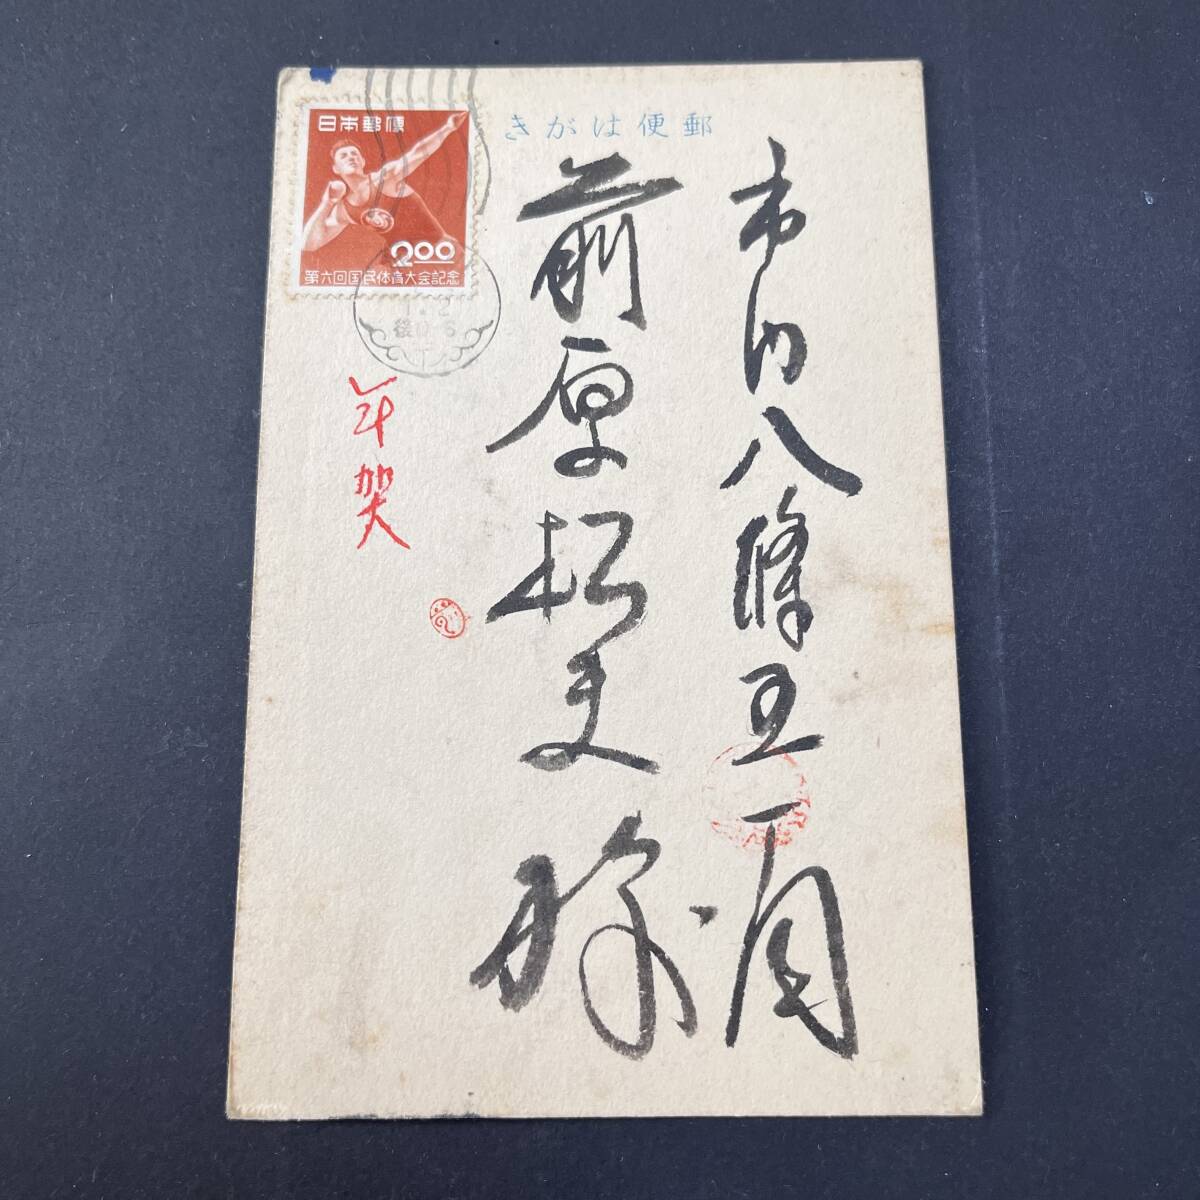 郵便はがき
日本郵便
2.00
第六回国民体育大会記念
後0-6
年賀
市内八條五丁目
前原松吏様